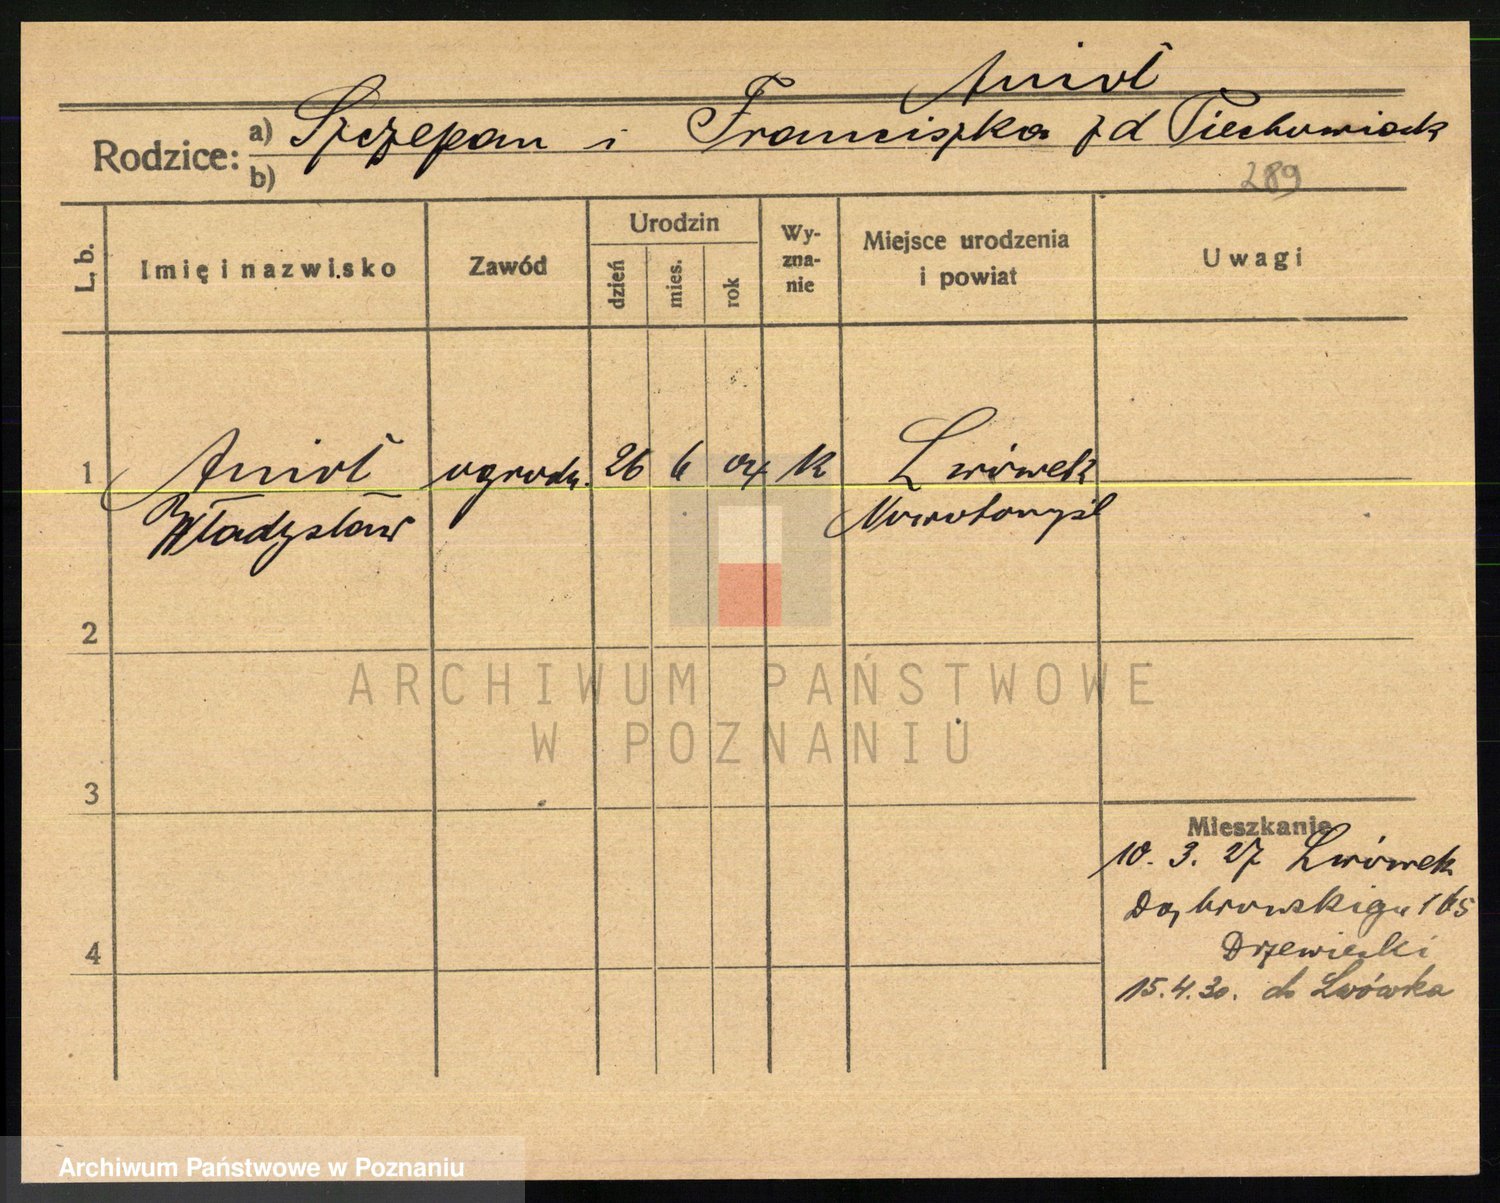 Anioł
Rodzice: a) Szczepan i Franciszka z d Piechowiak
b)
289
L. b.
Imię i nazwisko
Zawód
Urodzin
dzień
mies.
rok
Wy-
zna-
nie
Miejsce urodzenia
i powiat
Uwagi
1 Anioł ogrodn. 26 6 04 K Lwówek
Władysław Nowotomyśl
2
ARCHIWUM PAŃSTWOWE
W POZNANIU
3
Mieszkanie
10. 3. 27 Lwówek
Dąbrowskiego 165
Drzewiecki
4
15.4.30. do Lwówka
Archiwum Państwowe w Poznaniu